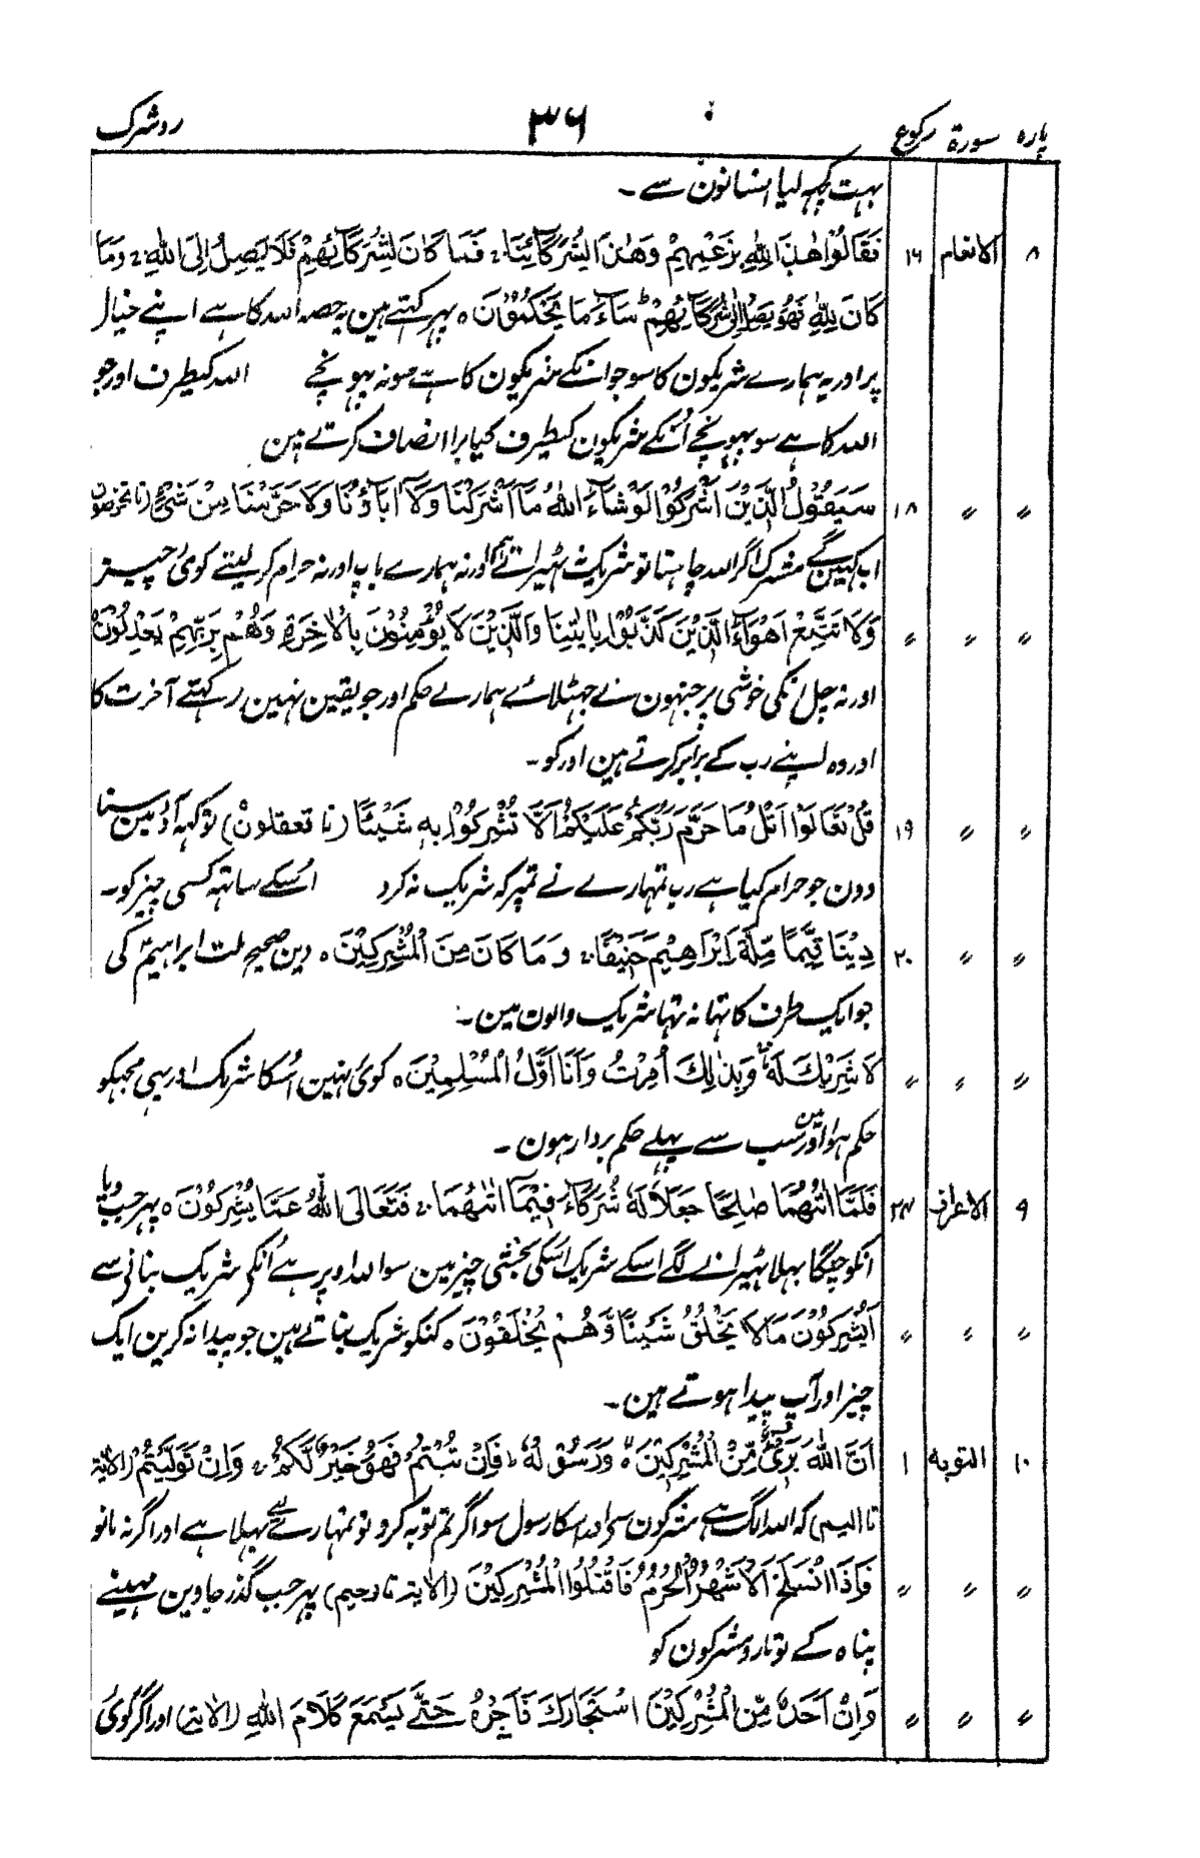 پارہ سورۃ رکوع ۳۶ رد شرک
بہت کچہہ لیا انسانون سے ۔
۸ الانعام ۱۶ فَقَالُوْا هٰذَا لِلّٰهِ بِزَعْمِهِمْ وَهٰذَا لِشُرَكَآئِنَا ۚ فَمَا كَانَ لِشُرَكَآئِهِمْ فَلَا يَصِلُ اِلَى اللّٰهِ ۚ وَمَا
كَانَ لِلّٰهِ فَهُوَ يَصِلُ اِلٰى شُرَكَآئِهِمْ ؕ سَآءَ مَا يَحْكُمُوْنَ ہ پہر کہتے ہین یہ حصہ اللہ کا ہے اپنے خیال
پر اور یہ ہمارے شریکون کا سو جو انکے شریکون کا ہے سو نہ پہونچے اللہ کیطرف اور جو
اللہ کا ہے سو پہونچے اُنکے شریکون کیطرف کیا برا انصاف کرتے ہین
〃 〃 ۱۸ سَيَقُوْلُ الَّذِيْنَ اَشْرَكُوْا لَوْ شَآءَ اللّٰهُ مَآ اَشْرَكْنَا وَلَآ اٰبَآؤُنَا وَلَا حَرَّمْنَا مِنْ شَيْءٍ (تا تخرصون
اب کہینگے مشرک اگر اللہ چاہتا تو شریک نہ ٹہیراتے ہم اور نہ ہمارے باپ اور نہ حرام کر لیتے کوئی چیز
〃 〃 〃 وَلَا تَتَّبِعْ اَهْوَآءَ الَّذِيْنَ كَذَّبُوْا بِاٰيٰتِنَا وَالَّذِيْنَ لَا يُؤْمِنُوْنَ بِالْاٰخِرَةِ وَهُمْ بِرَبِّهِمْ يَعْدِلُوْنَ
اور نہ چل انکی خوشی پر جنہون نے جہٹلائے ہمارے حکم اور جو یقین نہین رکہتے آخرت کا
اور وہ اپنے رب کے برابر کرتے ہین اور کو ۔
〃 〃 ۱۹ قُلْ تَعَالَوْا اَتْلُ مَا حَرَّمَ رَبُّكُمْ عَلَيْكُمْ اَلَّا تُشْرِكُوْا بِهٖ شَيْئًا (تا تعقلون) تو کہہ آؤ مین سنا
دون جو حرام کیا ہے رب تمہارے نے تمپر کہ شریک نہ کرو اُسکے ساتہہ کسی چیز کو ۔
〃 〃 ۲۰ دِيْنًا قِيَمًا مِّلَّةَ اِبْرَاهِيْمَ حَنِيْفًا ۚ وَمَا كَانَ مِنَ الْمُشْرِكِيْنَ ہ دین صحیح ملت ابراہیمؑ کی
جو ایک طرف کا تہا نہ تہا شریک والون مین ۔
〃 〃 〃 لَا شَرِيْكَ لَهٗ ۚ وَبِذٰلِكَ اُمِرْتُ وَاَنَا اَوَّلُ الْمُسْلِمِيْنَ ہ کوئی نہین اُسکا شریک اور یہی مجہکو
حکم ہوا اور مین سب سے پہلے حکم بردار ہون ۔
۹ الاعراف ۲۴ فَلَمَّا اٰتٰهُمَا صَالِحًا جَعَلَا لَهٗ شُرَكَآءَ فِيْمَا اٰتٰهُمَا ۚ فَتَعَالَى اللّٰهُ عَمَّا يُشْرِكُوْنَ ہ پہر جب دیا
انکو چنگا بہلا ٹہیرانے لگے اسکے شریک اسکی بخشی چیز مین سو اللہ اوپر ہے اُنکے شریک بنانی سے
〃 〃 〃 اَيُشْرِكُوْنَ مَا لَا يَخْلُقُ شَيْئًا وَّهُمْ يُخْلَقُوْنَ ہ کنکو شریک بناتے ہین جو پیدا نہ کرین ایک
چیز اور آپ پیدا ہوتے ہین ۔
۱۰ التوبہ ۱ اَنَّ اللّٰهَ بَرِيْٓءٌ مِّنَ الْمُشْرِكِيْنَ ہ وَرَسُوْلُهٗ ؕ فَاِنْ تُبْتُمْ فَهُوَ خَيْرٌ لَّكُمْ ۚ وَاِنْ تَوَلَّيْتُمْ (الایۃ
تا الیم) کہ اللہ الگ ہے مشرکون سے اور اسکا رسول سو اگر تم توبہ کرو تو تمہارے لئے بہلا ہے اور اگر نہ مانو
〃 〃 〃 فَاِذَا انْسَلَخَ الْاَشْهُرُ الْحُرُمُ فَاقْتُلُوا الْمُشْرِكِيْنَ (الایۃ تا رحیم) پہر جب گذر جاوین مہینے
پناہ کے تو مارو مشرکون کو
〃 〃 〃 وَاِنْ اَحَدٌ مِّنَ الْمُشْرِكِيْنَ اسْتَجَارَكَ فَاَجِرْهُ حَتّٰى يَسْمَعَ كَلَامَ اللّٰهِ (الایۃ) اور اگر کوئی